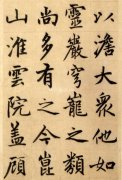 以澹大衆他如
靈巖穹窿之類
尚多有之今崑
山淮雲院盖顧